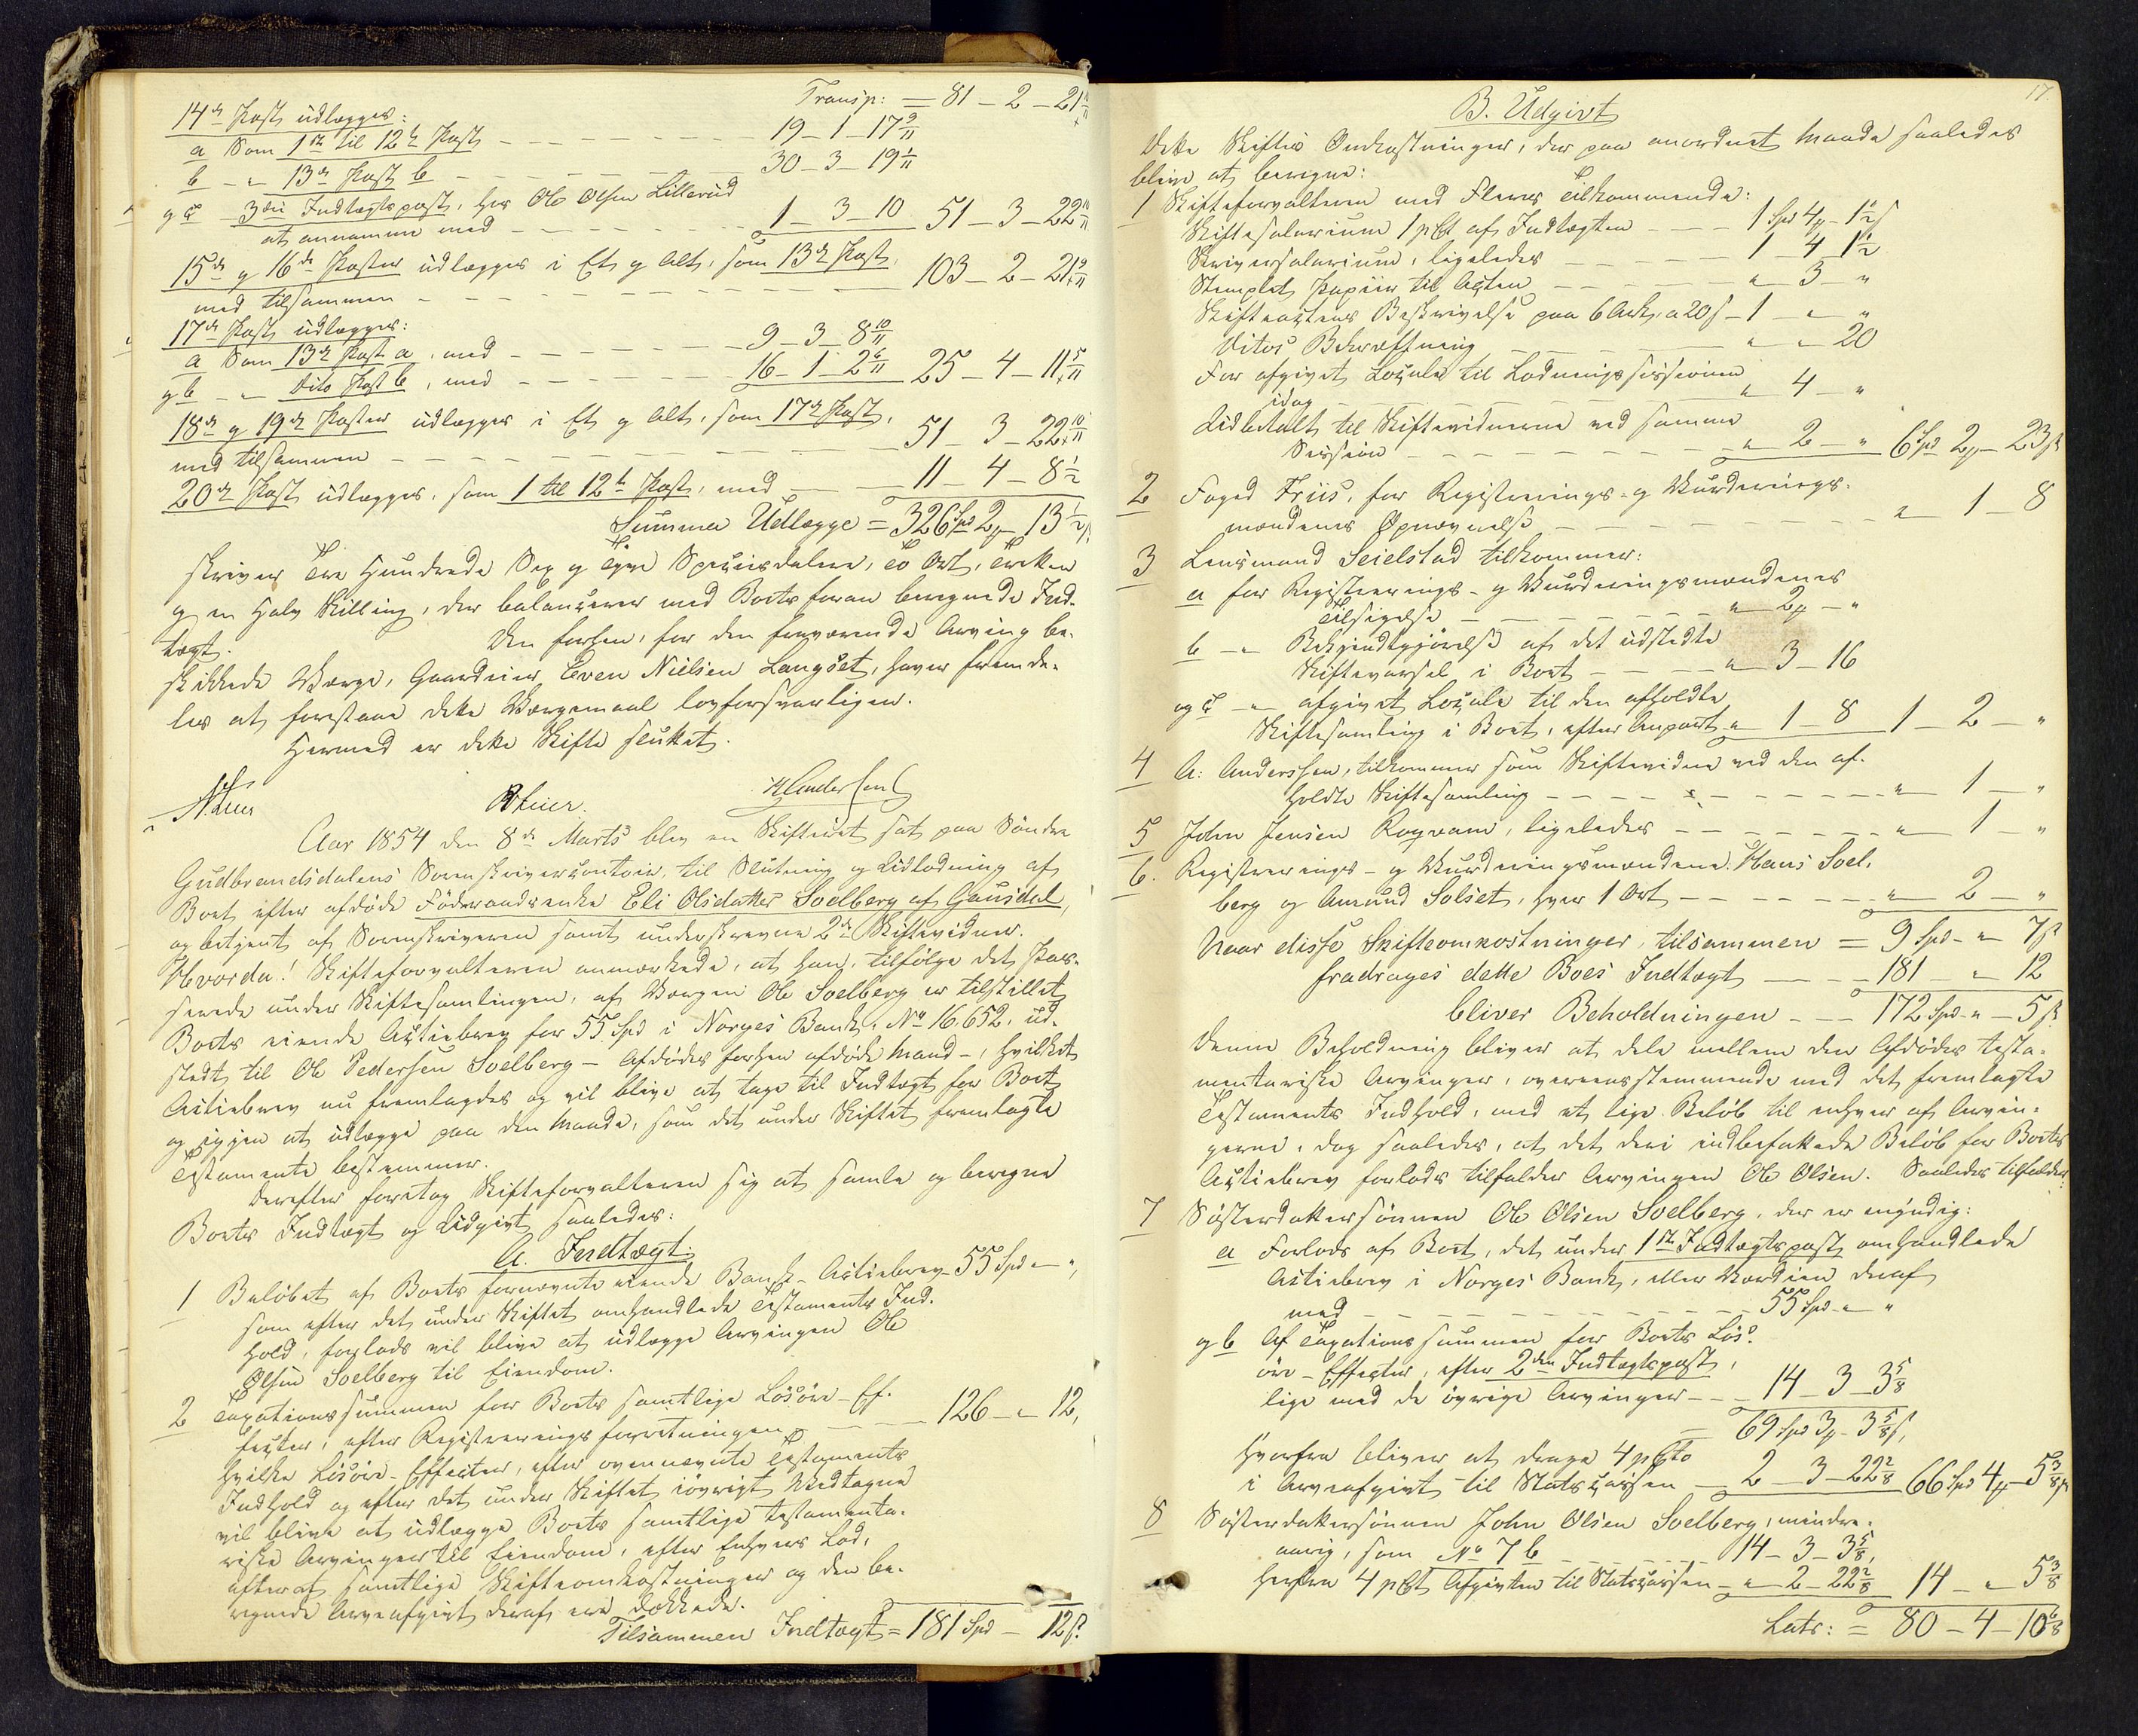 Transp: = 81 – 2 – 21
14de Post udlægges:
a Som 1ste til 12te Post – – – – 19 – 1 – 17 9/11
b – " 13de Post b – – – – 30 – 3 – 19 1/11
og c 3die Indtægtspost, hos Ole Olsen Lillerud
at annamme med – – – – 1 – 3 – 10   51 – 3 – 22 10/11
15de og 16de Poster udlægges i Et og Alt, som 13de Post,
med tilsammen – – – – 103 – 2 – 21 9/11
17de Post udlægges:
a Som 13de Post a, med – – – – 9 – 3 – 8 10/11
og b – " dito Post b, med – – – – 16 – 1 – 2 6/11   25 – 4 – 11 5/11
18de og 19de Poster udlægges i Et og Alt, som 17de Post,
med tilsammen – – – – 51 – 3 – 22 10/11
20de Post udlægges, som 1 til 12te Post, med – – 11 – 4 – 8 1/2
Summa Udlægge = 326 Spd 2 – 13 1/2 s.
skriver Tre Hundrede Sex og Tyve Speciesdalere, To Ort, Tretten
og en halv Skilling, der balancerer med Boets foran beregnede Ind-
tægt. Den forhen, for den fraværende Arving be-
skikkede Værge, Gaardeier Even Nielsen Langset, haver fremde-
les at forestaae dette Værgemaal lovforsvarligen.
Hermed er dette Skifte sluttet.
Aar 1854 den 8de Marts blev en Skifteret sat paa Søndre
Gudbrandsdalens Sorenskrivercontoir, til Slutning og Udlodning af
Boet efter afdøde Føderaadsenke Eli Olsdatter Soelberg af Gausdal,
og betjent af Sorenskriveren samt underskrevne 2de Skiftevidner.
Hvorda! Skifteforvalteren anmærkede, at ham, tilfølge det Pas-
serede under Skiftesamlingen, af Værgen Ole Soelberg er tilstillet
Boets eiende Actiebrev for 55 Spd i Norges Bank, No 16.652, ud-
stedt til Ole Pedersen Soelberg – Afdødes forhen afdøde Mand –, hvilket
Actiebrev nu fremlagdes og vil blive at tage til Indtægt for Boet
og igjen at udlægge paa den Maade, som det under Skiftet fremlagte
Testamente bestemmer.
Derefter foretog Skifteforvalteren sig at samle og beregne
Boets Indtægt og Udgivt saaledes:
A. Indtægt.
1 Beløbet af Boets fornævnte eiende Bank-Actiebrev – 55 Spd – " ",
som efter det under Skiftet omhandlede Testaments Ind-
hold, forlods vil blive at udlægge Arvingen Ole
Olsen Soelberg til Eiendom.
2 Taxationssummen for Boets samtlige Løsøre-Ef-
fecter, efter Registreringsforretningen – – – 126 – " 12,
hvilke Løsøre-Effecter, efter ovennævnte Testaments
Indhold og efter det under Skiftet iøvrigt Vedtagne
vil blive at udlægge Boets samtlige testamenta-
riske Arvinger til Eiendom, efter Enhvers Lod,
efterat samtlige Skifteomkostninger og den be-
regnede Arveafgivt deraf ere dækkede.
Tilsammen Indtægt = 181 Spd – 12 s.
17.
B. Udgivt
Dette Skiftes Omkostninger, der paa anordnet Maade saaledes
blive at beregne:
1 Skifteforvalteren med Fleres Tilkommende:
Skiftesalarium 1 pCt af Indtægten – – – 1 Spd 4 – 1 1/2 s
Skriversalarium, ligeledes – – – 1 – 4 1 1/2
Stemplet Papiir til Acten – – – " 3 – "
Skifteactens Beskrivelse paa 6 Ark, a 20 s – 1 – " – "
Ditos Bekræftning – – – " – " 20
For afgivet Locale til Lodningssessionen
idag – – – " 4 – "
Udbetalt til Skiftevidnerne ved samme
Session – – – " 2 – "   6 Spd 2 – 23 s
2 Foged Friis, for Registrerings- og Vurderings-
mændenes Opnævnelse – – – " 1 – 8
3 Lensmand Seielstad tilkommer:
a for Registrerings- og Vurderingsmændenes
Tilsigelse – – – " 2 – "
b – " Bekjendtgjørelse af det udstedte
Skiftevarsel i Boet – – – " 3 – 16
og c – " afgivet Locale til den afholdte
Skiftesamling i Boet, efter Anpart " 1 – 8   1 – 2 – "
4 A: Anderssen, tilkommer som Skiftevidne ved den af-
holdte Skiftesamling – – – " 1 – "
5 John Jensen Rogvam, ligeledes – – – " 1 – "
6. Registrerings- og Vurderingsmændene Hans Soel-
berg og Amund Solset, hver 1 Ort – – – " 2 – "
Naar disse Skifteomkostninger, tilsammen = 9 Spd – " 7 s
fradrages dette Boes Indtægt – – 181 – " 12
bliver Beholdningen – – – 172 Spd – " – 5 s.
Denne Beholdning bliver at dele mellem den Afdødes testa-
mentariske Arvinger, overeensstemmende med det fremlagte
Testaments Indhold, med et lige Beløb til enhver af Arvin-
gerne, dog saaledes, at det deri indbefattede Beløb for Boets
Actiebrev forlods tilfalder Arvingen Ole Olsen. Saaledes tilfalder:
7 Søsterdattersønnen Ole Olsen Soelberg, der er myndig:
a Forlods af Boet, det under 1ste Indtægtspost omhandlede
Actiebrev i Norges Bank, eller Værdien deraf
med – – – 55 Spd – " "
og b Af Taxationssummen for Boets Løs-
øre-Effecter, efter 2den Indtægtspost,
lige med de øvrige Arvinger – – 14 – 3 – 3 5/8
= 69 Spd 3 – 3 5/8 s,
hvorfra bliver at drage 4 pCto
i Arveafgivt til Statscassen – 2 – 3 – 22 2/8   66 Spd 4 – 5 3/8 s
8 Søsterdattersønnen John Olsen Soelberg, mindre-
aarig, som No 7 b – – – 14 – 3 – 3 5/8,
herfra 4 pCt Afgivten til Statscassen – " 2 – 22 2/8   14 – " 5 3/8
Lats: = 80 – 4 – 10 6/8